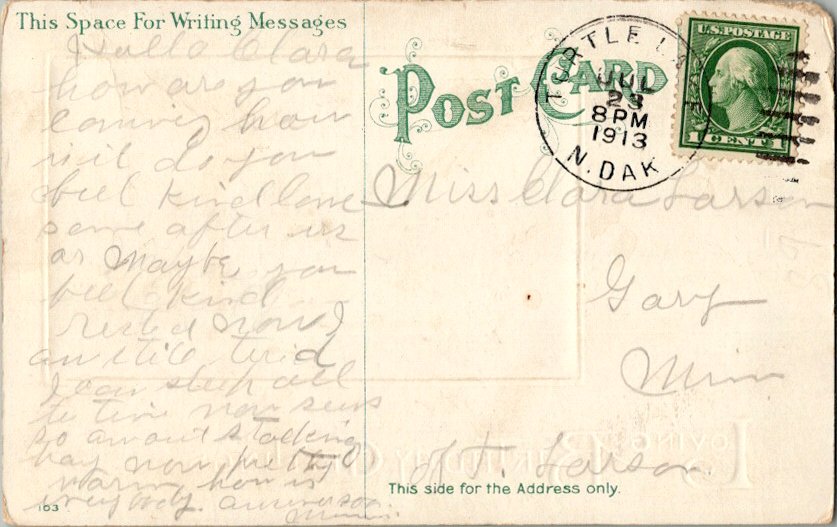 This Space For Writing Messages
Hallo Clara
how are you
coming how
do you
feel kind lone
some after us
or maybe you
feel kind
rested now I
am still tired
I can sleep all
te time now
so am out
hay now pretty
warm how is
everybody.
163
POST CARD
TURTLE LAKE
JUL
23
8 PM
1913
N. DAK
U.S. POSTAGE
1 CENT 1
Miss Clara Larson
Gary
Minn
Larson
This side for the Address only.